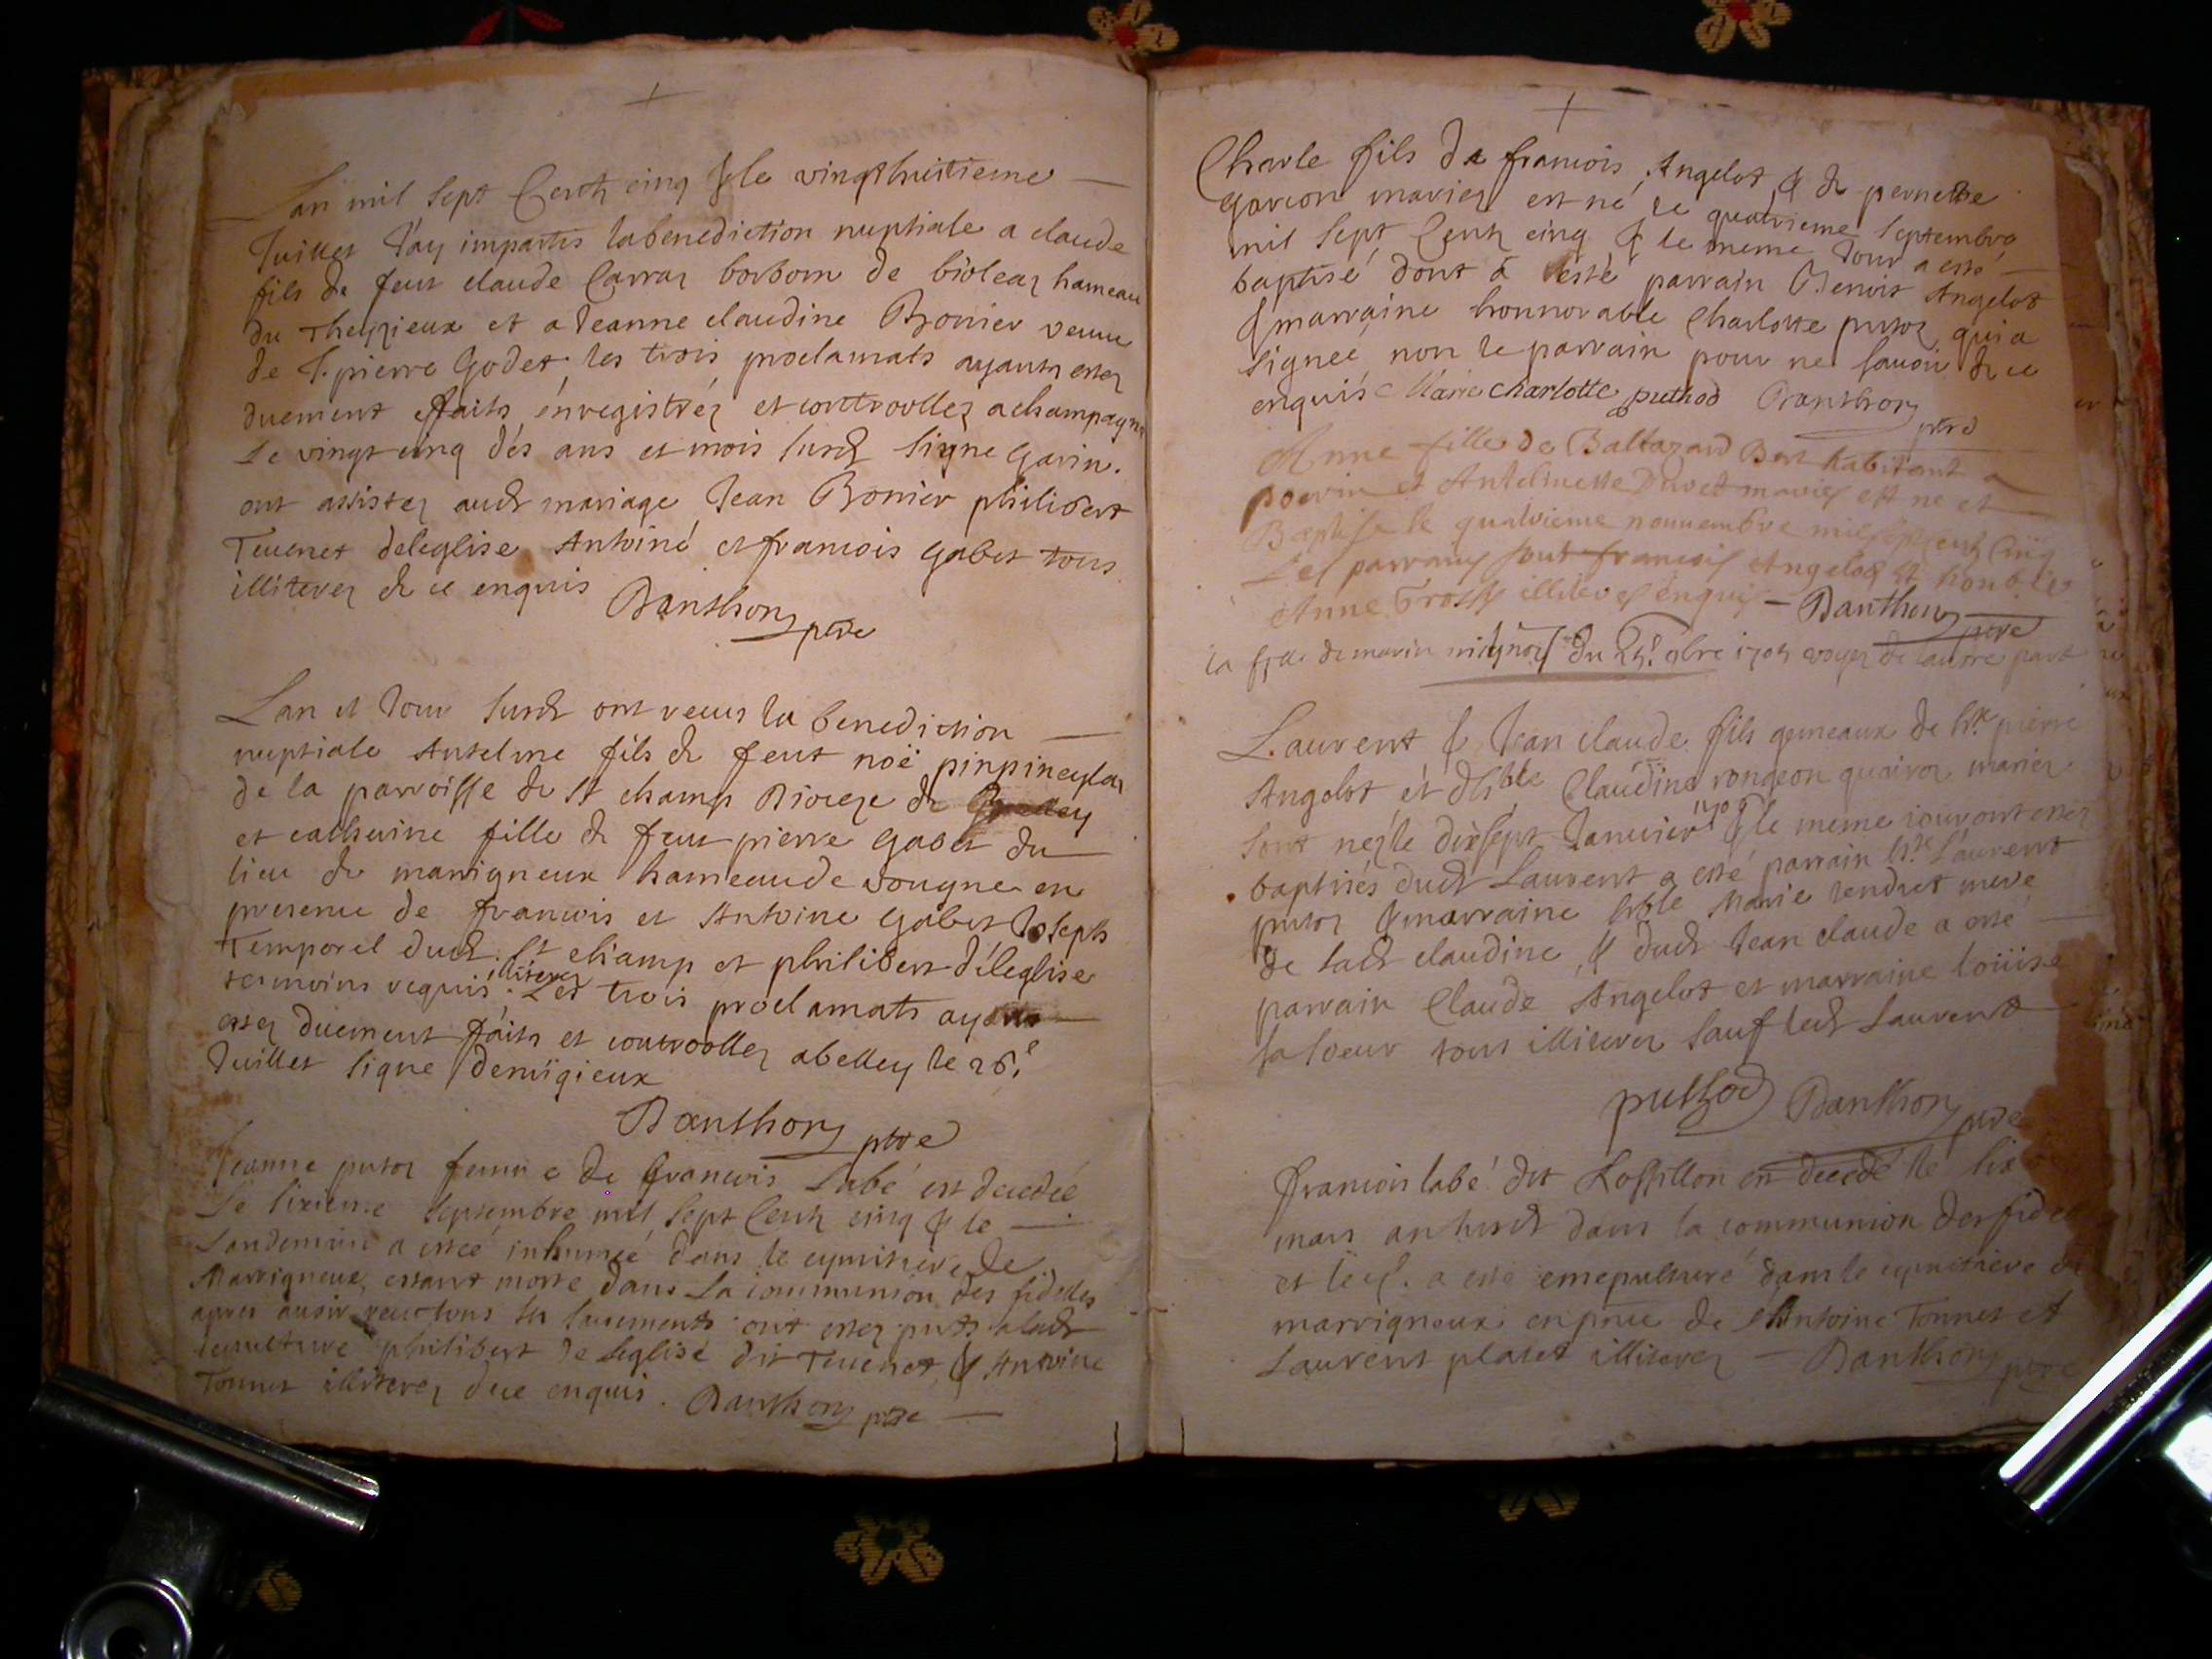 Lan mil sept Centz cinq & le vingt huitieme
Juillet J'ay impartis la benediction nuptiale a claude
fils de feut claude Carraz borbom de bioleaz hameau
du Thezieux et a Jeanne claudine Bonier veuue
de f. pierre Godet, les trois proclamats ayants estez
duement ffaits enregistréz et controollez a champagne
Le vingt cinq dés ans et mois susd signe Gavin.
ont assistez aud mariage Jean Bonier philibert
Teuenet deleglise Antoine et francois Gabet tous
illiterez de ce enquis Danthon ptre
Lan et Jour susd ont receus la benediction
nuptiale Antelme fils de feut noë
de la parroisse de St champ Dioceze de Belley
et catherine fille de feu pierre Gabet du
lieu de marrigneux hameau de vougne en
presence de francois et Antoine Gabet Joseph
Temporel dud. St champ et philibert déleglise
tesmoins requis illiterez. Les trois proclamats ayants
estez düement ffaits et controollez abelley le 26.e
Juillet signe demigieux
Danthon ptre
Jeanne putoz femme de francois Labé est decedée
Le sixieme septembre mil sept Centz cinq & le
Landemain a estee inhumée dans le cymitiere de
Marrigneux, estant morte dans La communion des fidelles
apres auoir receu tous les sacrements ont estez pnts a lad
sepulture philibert de Leglise dit Teuenet & Antoine
Tonnet illiterez de ce enquis. Danthon ptre
Charle fils de francois Angelot & de pernette
garcon mariez est né le quatrieme septembre
mil sept Centz cinq & le meme Jour a esté
baptisé dont a esté parrain Benoit Angelot
& marraine honnorable Charlotte putoz qui a
signeé non le parrain pour ne sauoir de ce
enquis Marie charlotte puthod Danthon
ptre
Anne fille de Baltazard Bert habitant a
pouvin et Antelmette Duvet mariez est ne et
Baptise le quatrieme nouuembre mil sept cent Cinq
Les parrains sont francois Angelot et honble
Anne illiterez enquis Danthon
ptre
la fille de marin du 25.e 9bre 1705 voyez de lautre part
Laurent & Jean claude fils gemeaux de hle pierre
Angelot et dhble Claudine rongeon mariez
sont nez le dixsept Januier 1706 & le meme iour ont estez
baptisés dud Laurent a esté parrain hle Laurent
putoz & marraine hble Marie tendret mere
de lad claudine, & dud Jean claude a esté
parrain Claude Angelot et marraine loüise
sa soeur tous illiterez sauf led Laurent
puthod Danthon ptre
francois labé dit Lospillon est decedé le six
mars an susd dans la communion des fidel
et le a esté ensepulturé dans le cymitiere de
marrigneux en pnce de Antoine Tonnet et
Laurent platet illiterez Danthon ptre